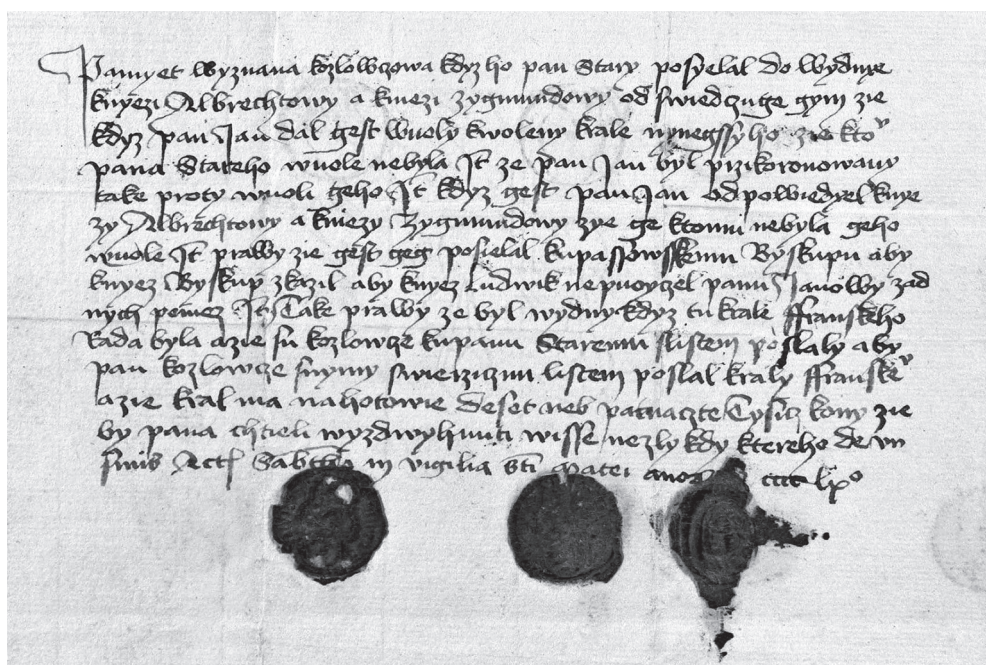 Pamyet wyznana kozlowczowa kdyz ho pan Stary posyelal do wydnye
knyezi Albrechtowy a knezi zygmundowy od swiedczuge gym zie
kdyz pan Jan dal gest wuoly kwoleny krale nynegssyho zie kto
pana Stareho wuole nebyla It ze pan Jan byl przikoronowany
take proty wuoli geho It kdyz gest pan Jan odpowiedyel knye
zy Albrechtowy a knezy zygmundowy zye ge ktomu nebyla geho
wuole It prawy zie gest geg posielal kupassowskemu Byskupu aby
knyez Byskup zkazil aby knyez Ludwik nepuoyczel panu Janowy zad
nych penez It Take prawy ze byl wydny kdyz tu krale ffranskeho
Rada byla a zie su kozlowcze kupanu Staremu slistem poslaly aby
pan kozlowcze snymy swierziczim listem poslal kraly ffranske
a zie kral ma na hotowie deset neb patnaczte Tysicz kony zie
by pana chtieli wyzdwyhnuti wisse nezly kdy ktereho de vn
sinis Sabbato in vigilia sti Matei cccc lxo